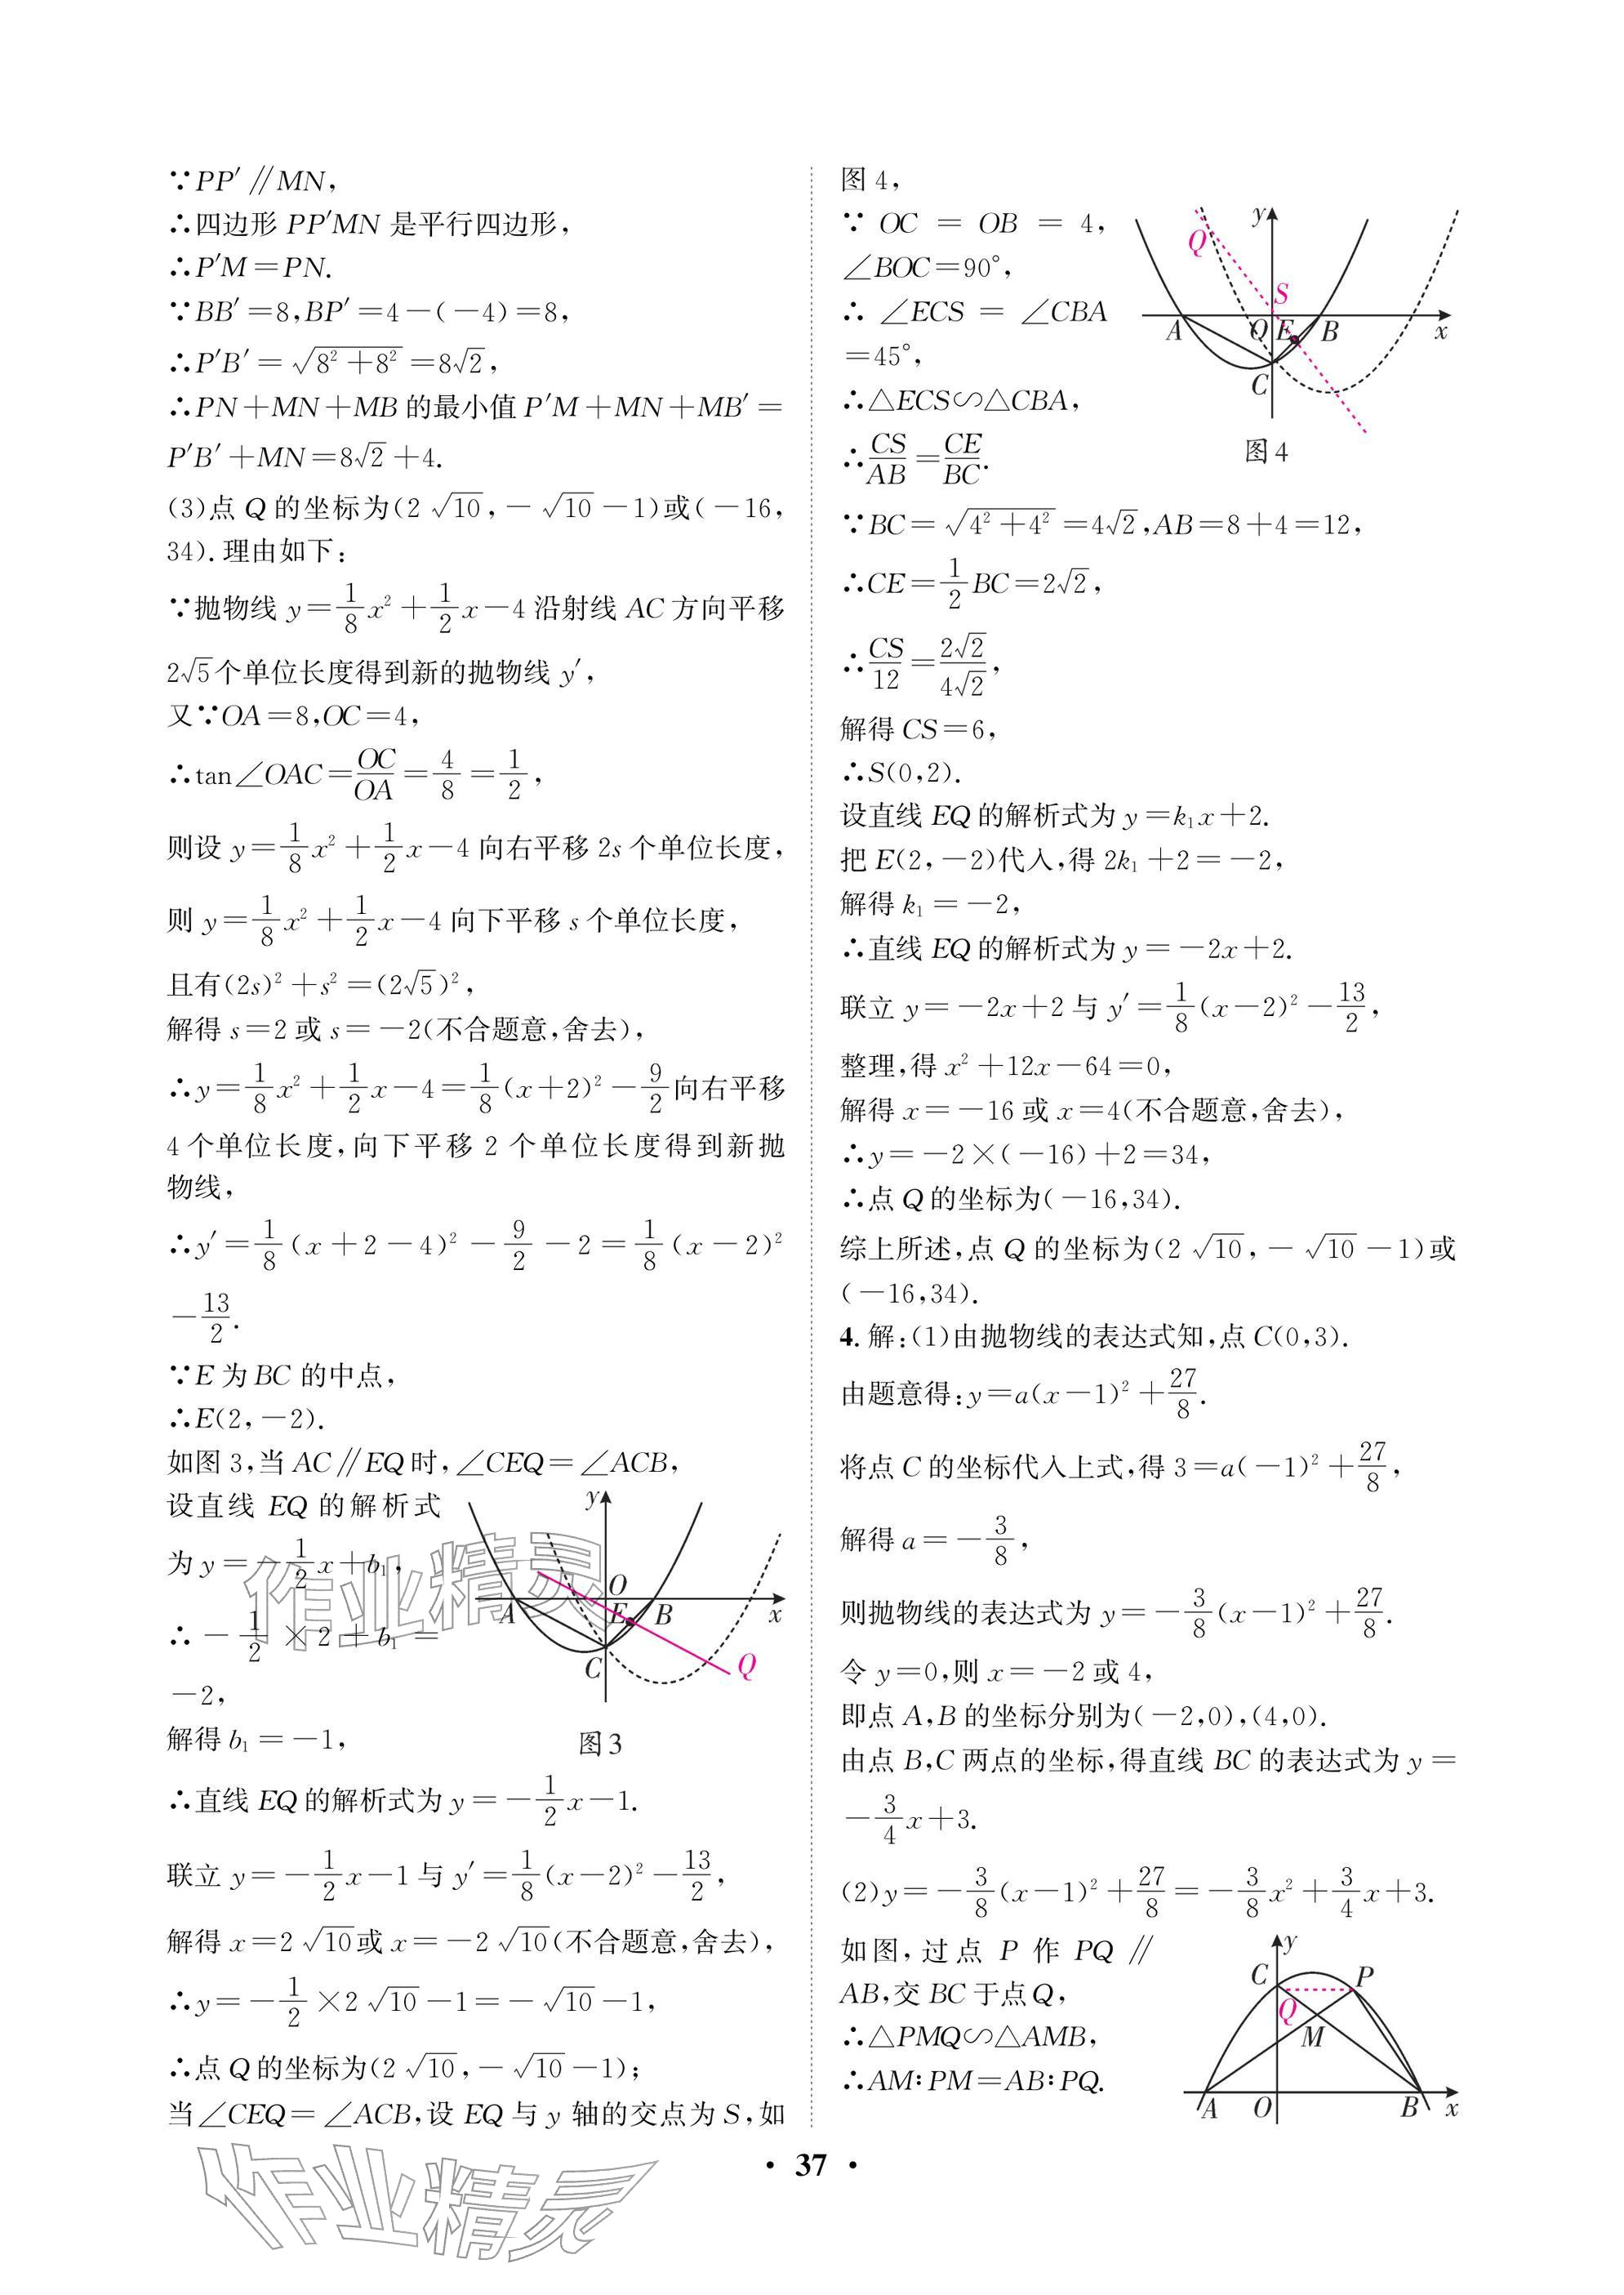 ∵PP′∥MN,
∴四边形 PP′MN 是平行四边形,
∴P′M=PN.
∵BB′=8,BP′=4-(-4)=8,
∴P′B′=√(8²+8²)=8√2,
∴PN+MN+MB 的最小值 P′M+MN+MB′=
P′B′+MN=8√2+4.
(3)点 Q 的坐标为(2√10,-√10-1)或(-16,
34).理由如下:
∵抛物线 y=1/8x²+1/2x-4 沿射线 AC 方向平移
2√5个单位长度得到新的抛物线 y′,
又∵OA=8,OC=4,
∴tan∠OAC=OC/OA=4/8=1/2,
则设 y=1/8x²+1/2x-4 向右平移 2s 个单位长度,
则 y=1/8x²+1/2x-4 向下平移 s 个单位长度,
且有(2s)²+s²=(2√5)²,
解得 s=2 或 s=-2(不合题意,舍去),
∴y=1/8x²+1/2x-4=1/8(x+2)²-9/2向右平移
4 个单位长度,向下平移 2 个单位长度得到新抛
物线,
∴y′=1/8(x+2-4)²-9/2-2=1/8(x-2)²
-13/2.
∵E 为 BC 的中点,
∴E(2,-2).
如图 3,当 AC∥EQ 时,∠CEQ=∠ACB,
设直线 EQ 的解析式
为 y=-1/2x+b₁,
∴-1/2×2+b₁=
-2,
解得 b₁=-1,
y
O
A
E
B
x
C
Q
图3
∴直线 EQ 的解析式为 y=-1/2x-1.
联立 y=-1/2x-1 与 y′=1/8(x-2)²-13/2,
解得 x=2√10或 x=-2√10(不合题意,舍去),
∴y=-1/2×2√10-1=-√10-1,
∴点 Q 的坐标为(2√10,-√10-1);
当∠CEQ=∠ACB,设 EQ 与 y 轴的交点为 S,如
图 4,
∵ OC = OB = 4,
∠BOC=90°,
∴ ∠ECS = ∠CBA
=45°,
∴△ECS∽△CBA,
∴CS/AB=CE/BC.
y
Q
S
A
O
E
B
x
C
图4
∵BC=√(4²+4²)=4√2,AB=8+4=12,
∴CE=1/2BC=2√2,
∴CS/12=2√2/4√2,
解得 CS=6,
∴S(0,2).
设直线 EQ 的解析式为 y=k₁x+2.
把 E(2,-2)代入,得 2k₁+2=-2,
解得 k₁=-2,
∴直线 EQ 的解析式为 y=-2x+2.
联立 y=-2x+2 与 y′=1/8(x-2)²-13/2,
整理,得 x²+12x-64=0,
解得 x=-16 或 x=4(不合题意,舍去),
∴y=-2×(-16)+2=34,
∴点 Q 的坐标为(-16,34).
综上所述,点 Q 的坐标为(2√10,-√10-1)或
(-16,34).
4.解:(1)由抛物线的表达式知,点 C(0,3).
由题意得:y=a(x-1)²+27/8.
将点 C 的坐标代入上式,得 3=a(-1)²+27/8,
解得 a=-3/8,
则抛物线的表达式为 y=-3/8(x-1)²+27/8.
令 y=0,则 x=-2 或 4,
即点 A,B 的坐标分别为(-2,0),(4,0).
由点 B,C 两点的坐标,得直线 BC 的表达式为 y=
-3/4x+3.
(2)y=-3/8(x-1)²+27/8=-3/8x²+3/4x+3.
如图,过点 P 作 PQ∥
AB,交 BC 于点 Q,
∴△PMQ∽△AMB,
∴AM∶PM=AB∶PQ.
y
C
P
Q
M
A
O
B
x
作业精灵
作业精灵
• 37 •